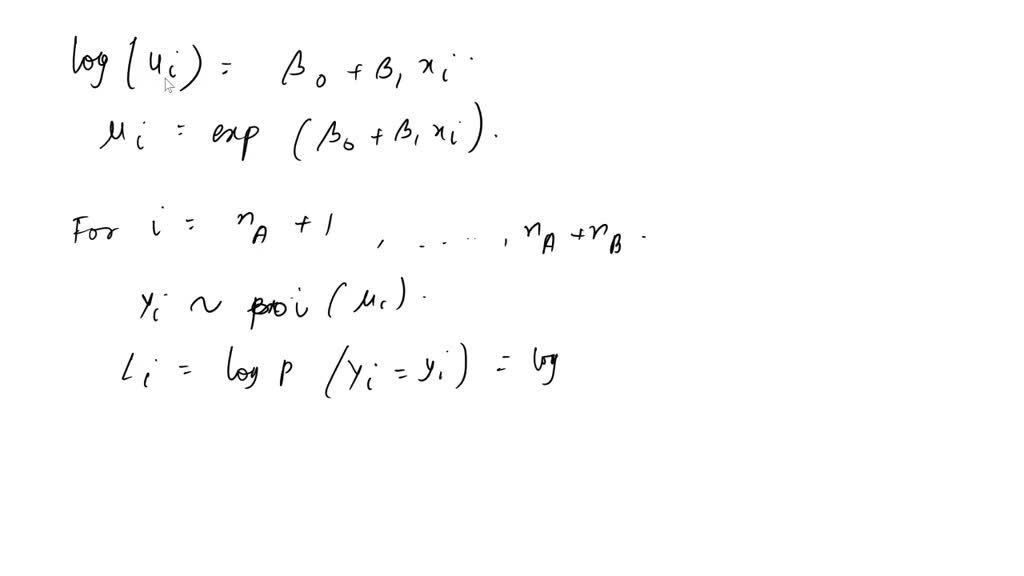 log (μi) = β0 + β1 xi
μi = exp (β0 + β1 xi).
For i = nA + 1, ....., nA + nB.
Yi ~ poi (μi).
Li = log P (Yi = yi) = log